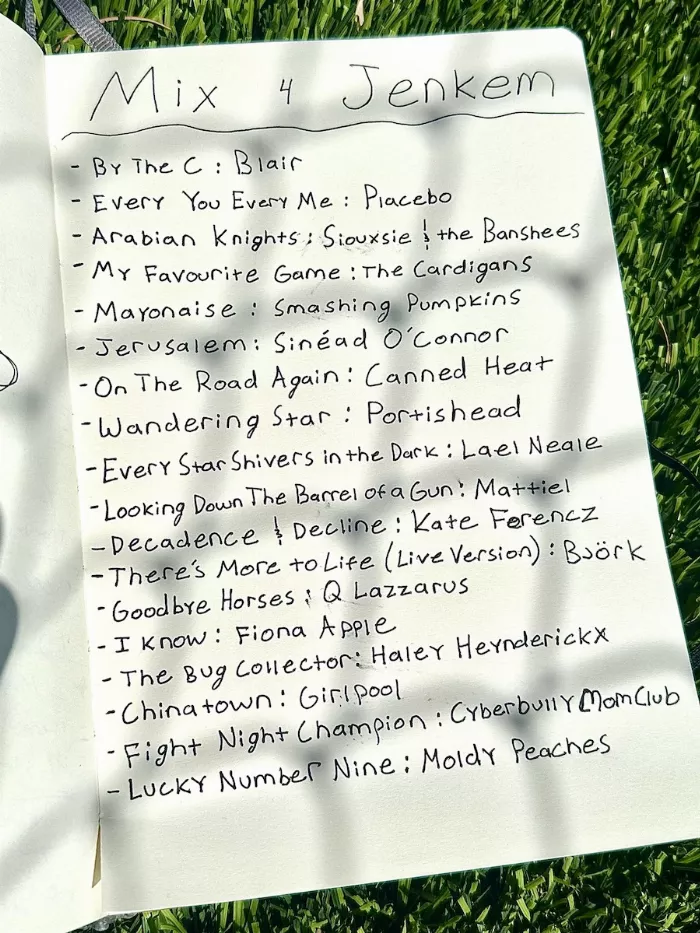 Mix 4 Jenkem
- By The C : Blair
- Every You Every Me : Placebo
- Arabian Knights : Siouxsie & the Banshees
- My Favourite Game : The Cardigans
- Mayonaise : Smashing Pumpkins
- Jerusalem : Sinéad O'Connor
- On The Road Again : Canned Heat
- Wandering Star : Portishead
- Every Star Shivers in the Dark : Lael Neale
- Looking Down The Barrel of a Gun : Mattiel
- Decadence & Decline : Kate Ferencz
- There's More to Life (Live Version) : Björk
- Goodbye Horses : Q Lazzarus
- I Know : Fiona Apple
- The Bug Collector : Haley Heynderickx
- Chinatown : Girlpool
- Fight Night Champion : Cyberbully Mom Club
- Lucky Number Nine : Moldy Peaches